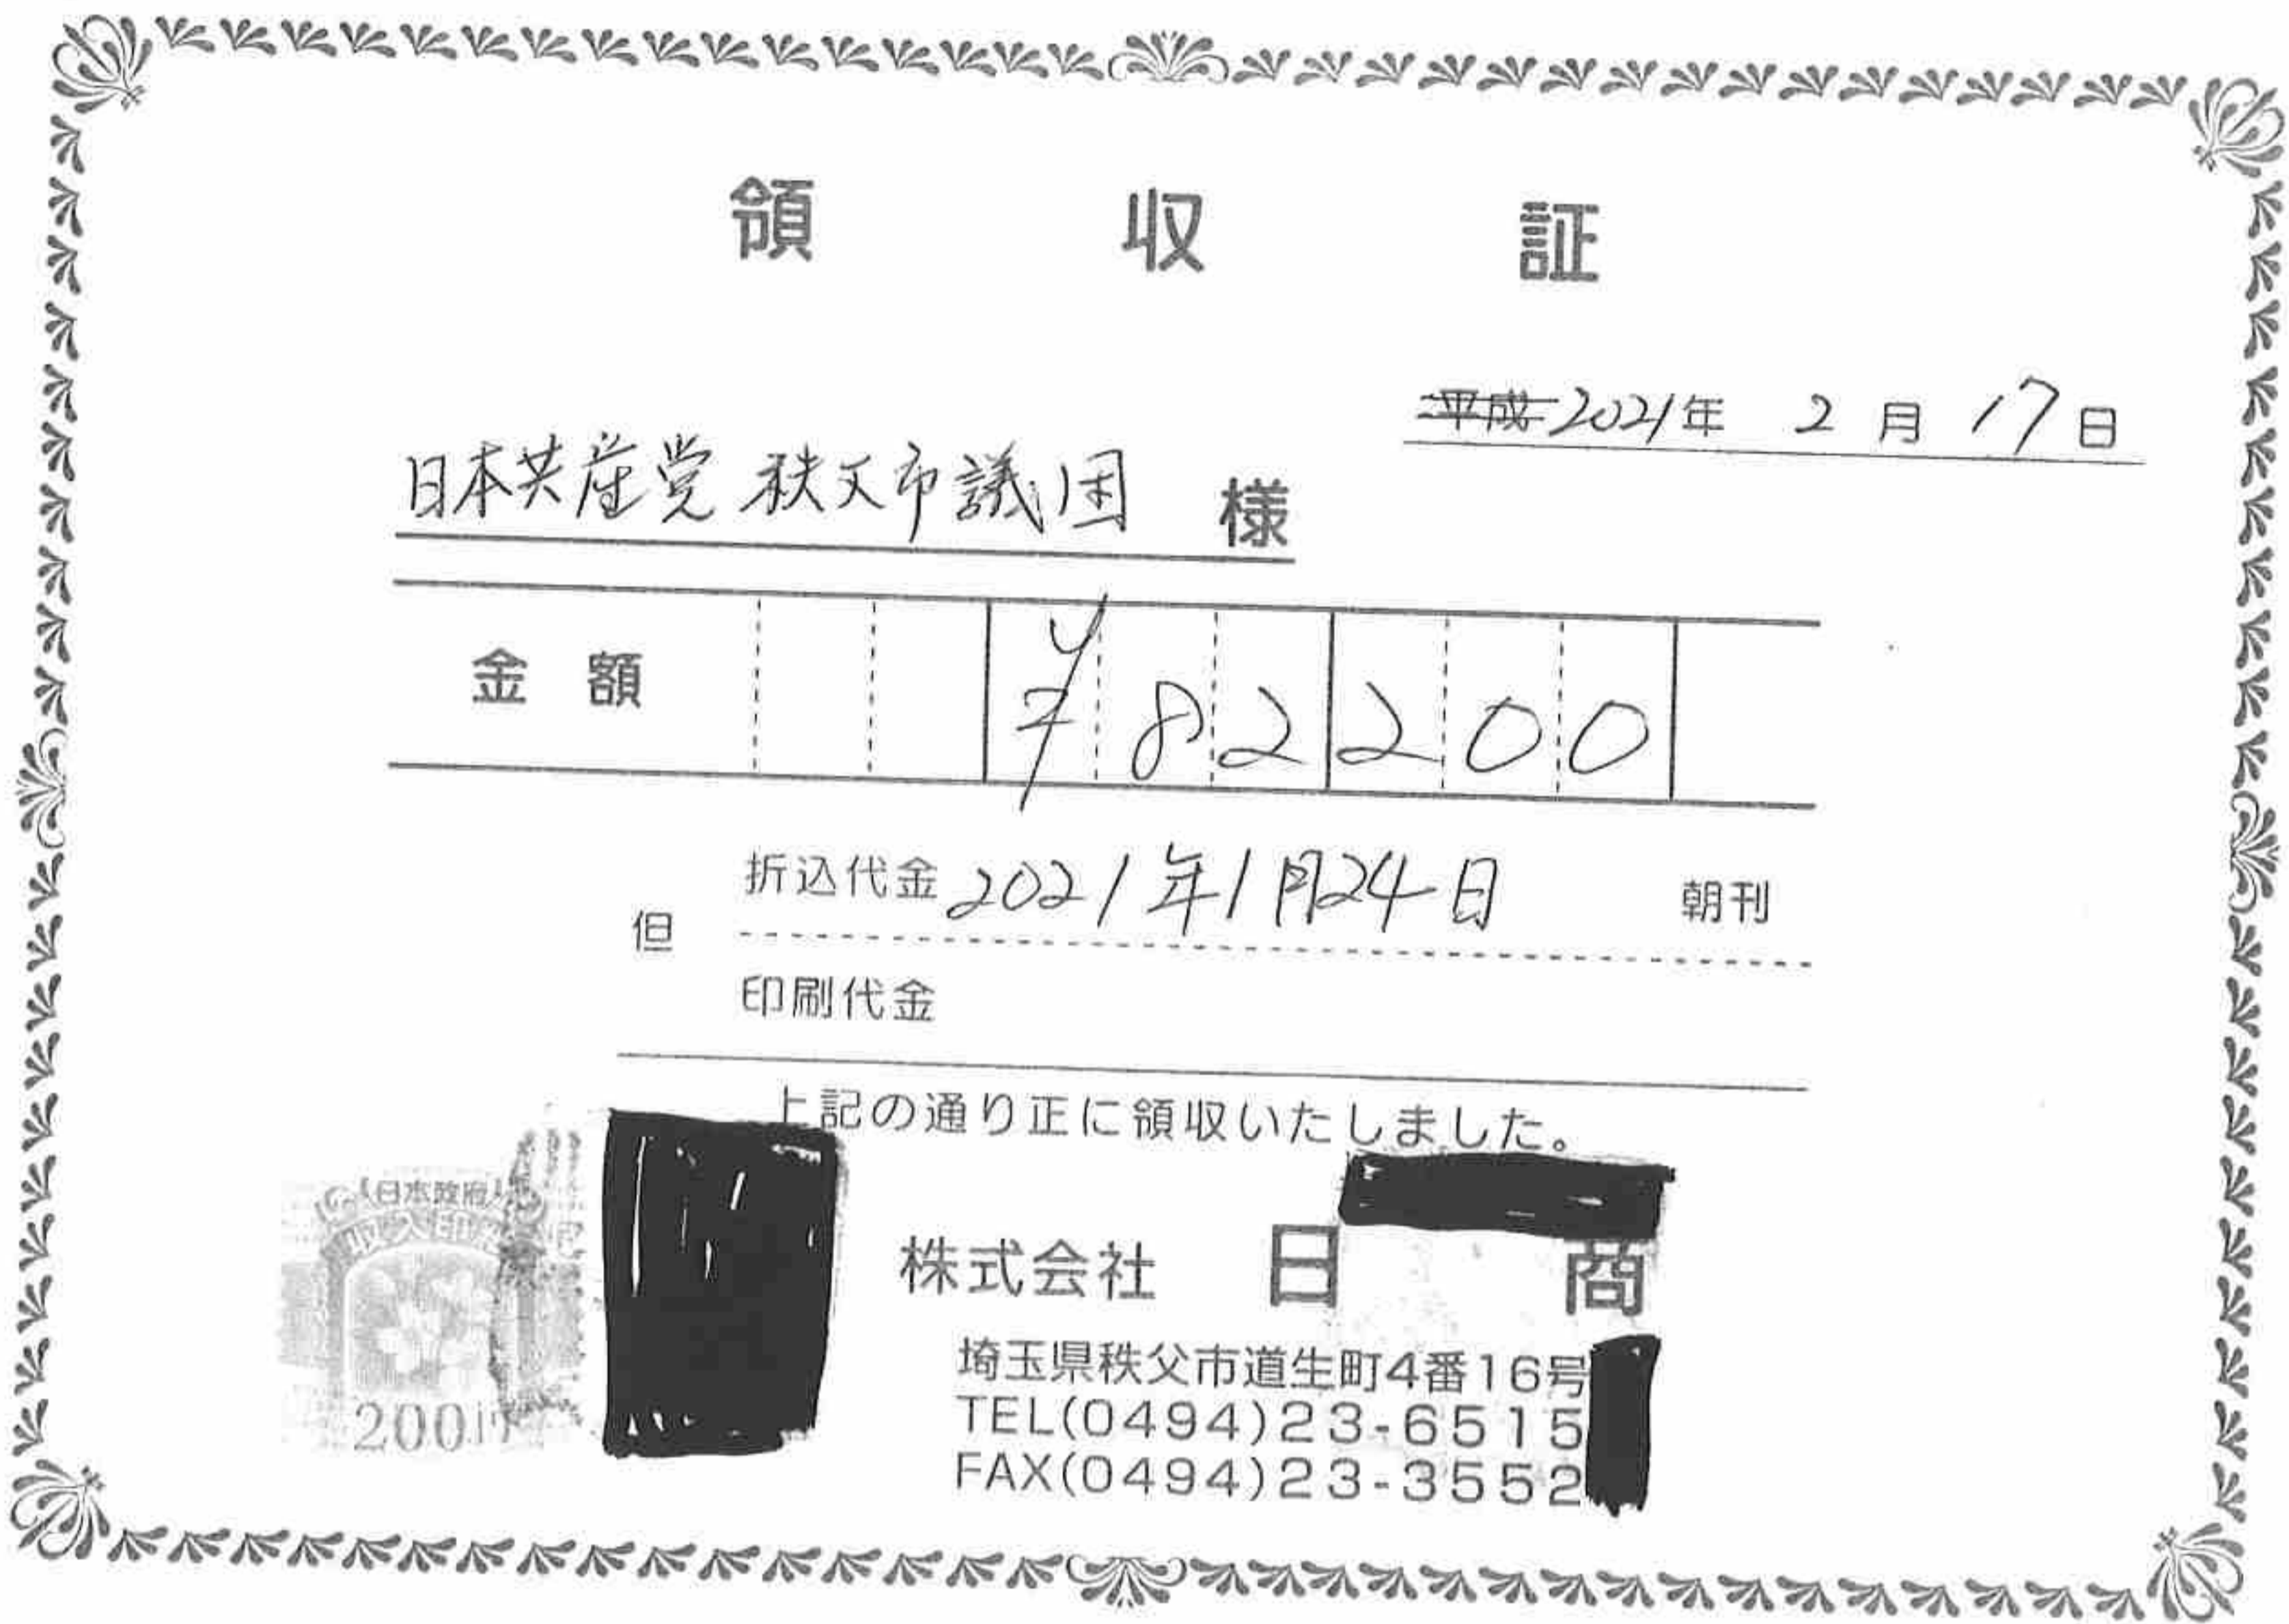 領収証
平成 2021年 2月 17日
日本共産党 秩父市議団 様
金額 ¥82200
折込代金 2021年1月24日 朝刊
但
印刷代金
上記の通り正に領収いたしました。
日本政府
収入印紙
200円
株式会社 日 商
埼玉県秩父市道生町4番16号
TEL(0494)23-6515
FAX(0494)23-3552